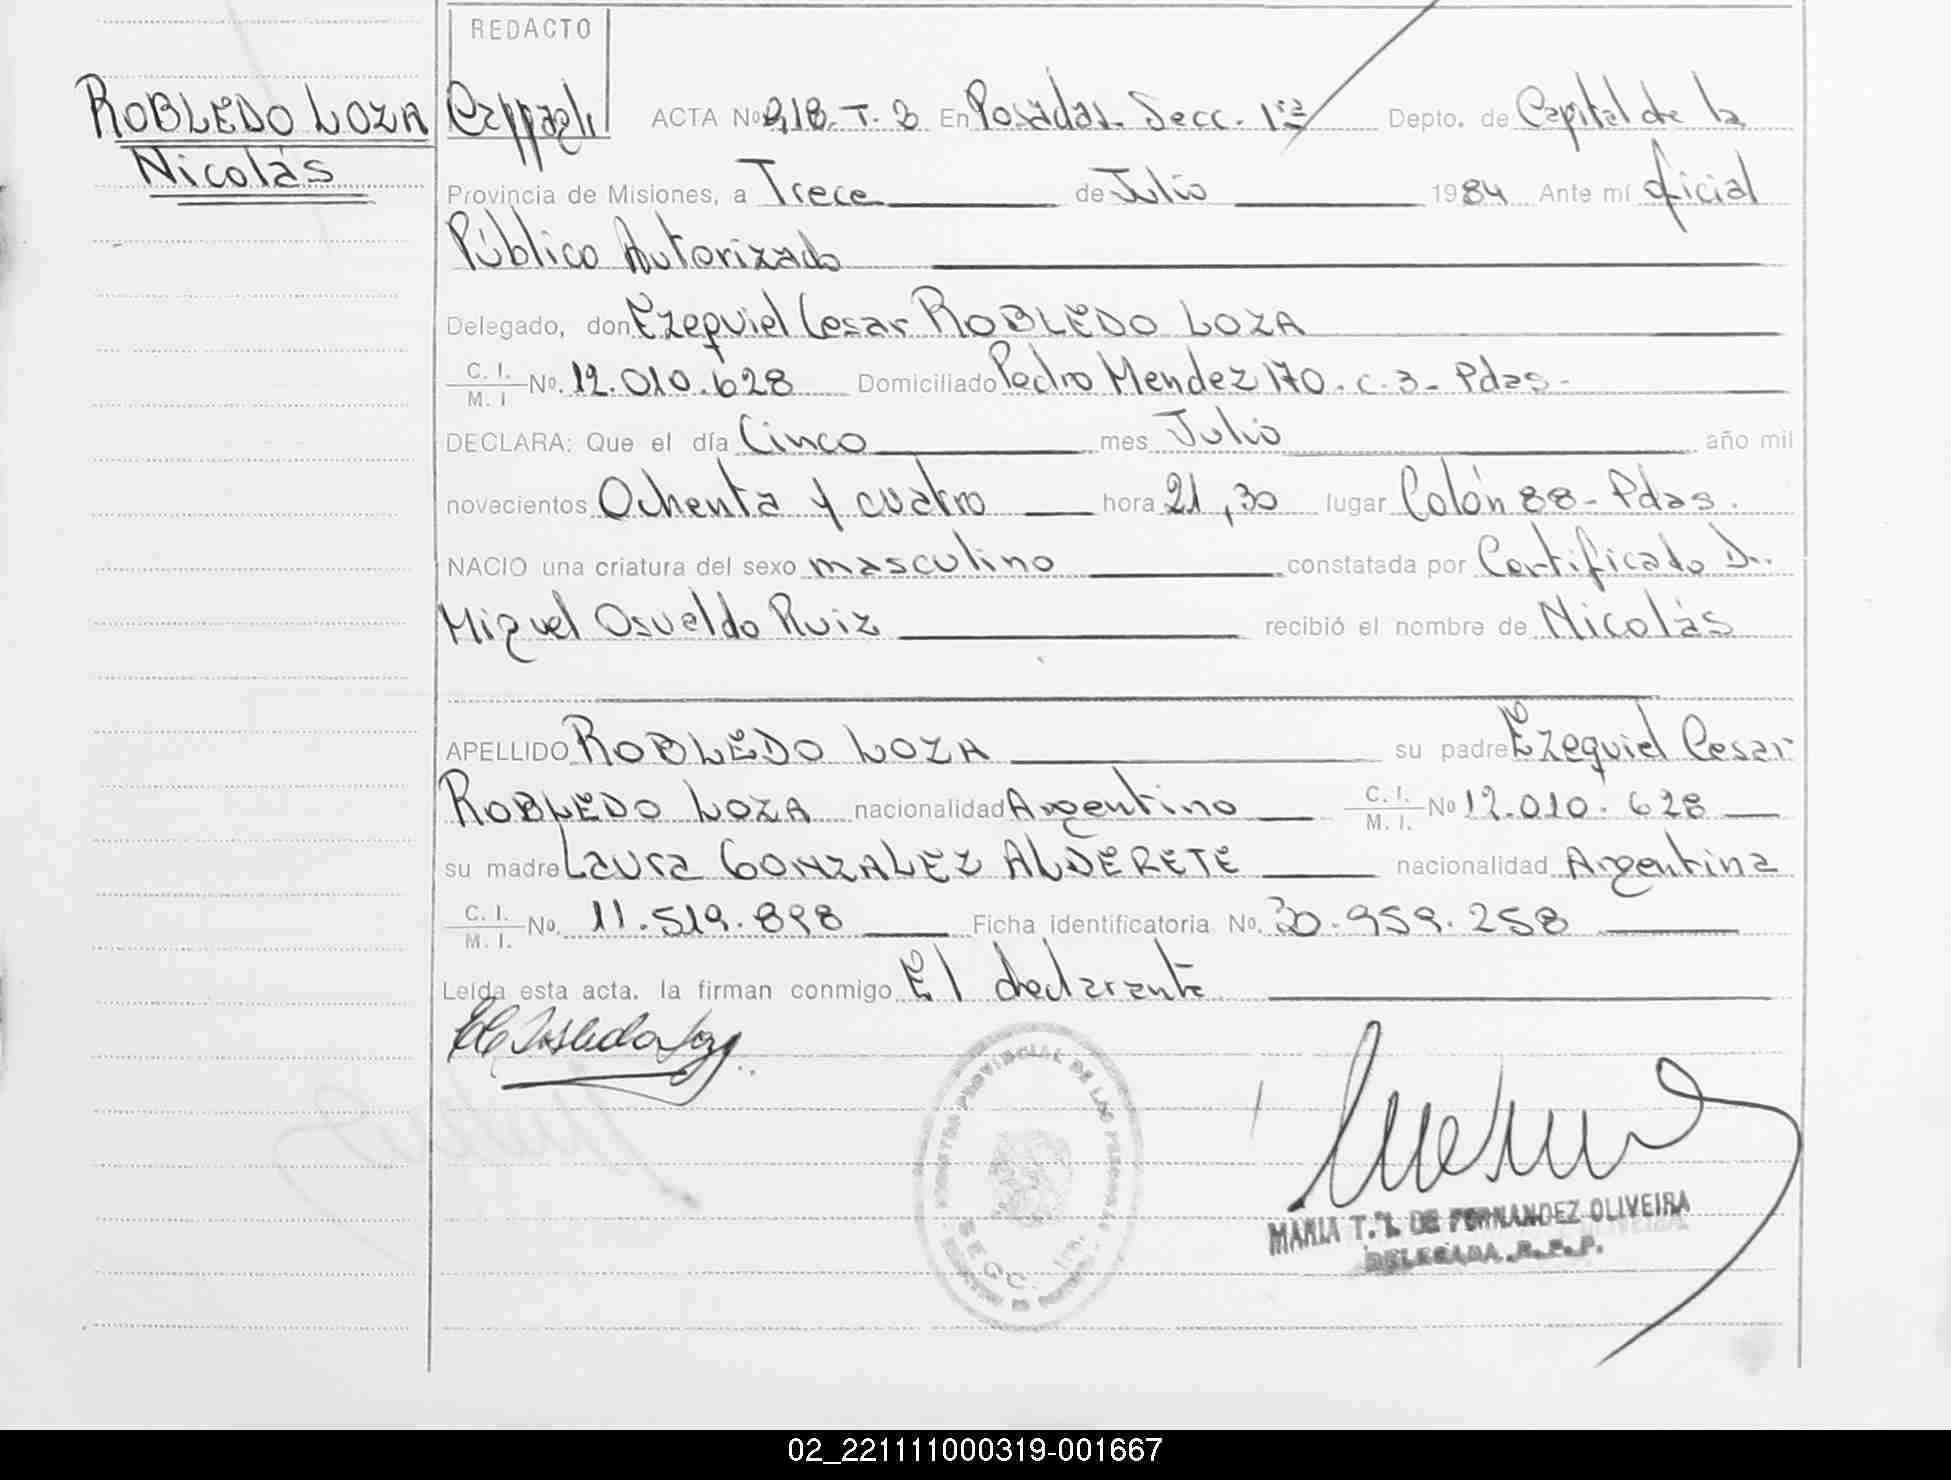 REDACTO
ROBLEDO LOZA
Nicolás
ACTA Nº 918 - T. 3 En Posadas. Secc. 1ra Depto. de Capital de la
Provincia de Misiones, a Trece de Julio 1984 Ante mí oficial
Público Autorizado
Delegado, don Ezequiel Cesar ROBLEDO LOZA
C. I. / M. I Nº. 12.010.628 Domiciliado Pedro Mendez 170. c. 3 - Pdas -
DECLARA: Que el día Cinco mes Julio año mil
novecientos Ochenta y cuatro hora 21,30 lugar Colón 88 - Pdas.
NACIO una criatura del sexo masculino constatada por Certificado Dr.
Miguel Osvaldo Ruiz recibió el nombre de Nicolás
APELLIDO ROBLEDO LOZA su padre Ezequiel Cesar
ROBLEDO LOZA nacionalidad Argentino C. I. / M. I. Nº 12.010.628
su madre Laura GONZALEZ ALDERETE nacionalidad Argentina
C. I. / M. I. Nº. 11.519.898 Ficha identificatoria Nº. 30.959.258
Leída esta acta, la firman conmigo El declarante
REGISTRO PROVINCIAL DE LAS PERSONAS
SECC. 1ra.
MARIA T. L. DE FERNANDEZ OLIVEIRA
DELEGADA R. P. P.
02_221111000319-001667